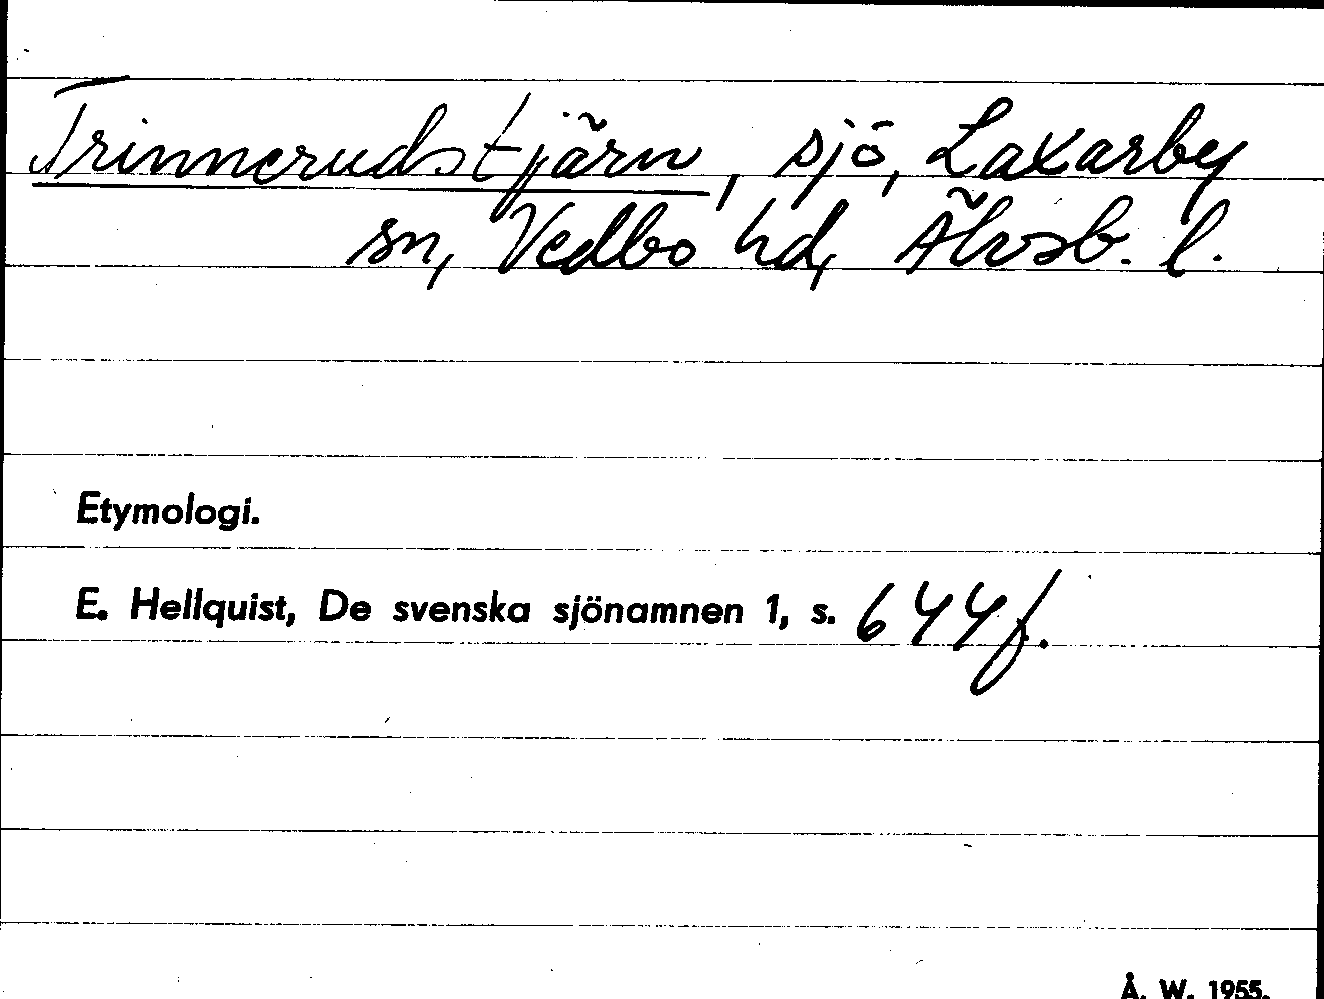 Trinnerudstjärn, sjö, Laxarby
sn, Vedbo hd, Älvsb. l.
Etymologi.
E. Hellquist, De svenska sjönamnen 1, s. 644f.
Å. W. 1955.